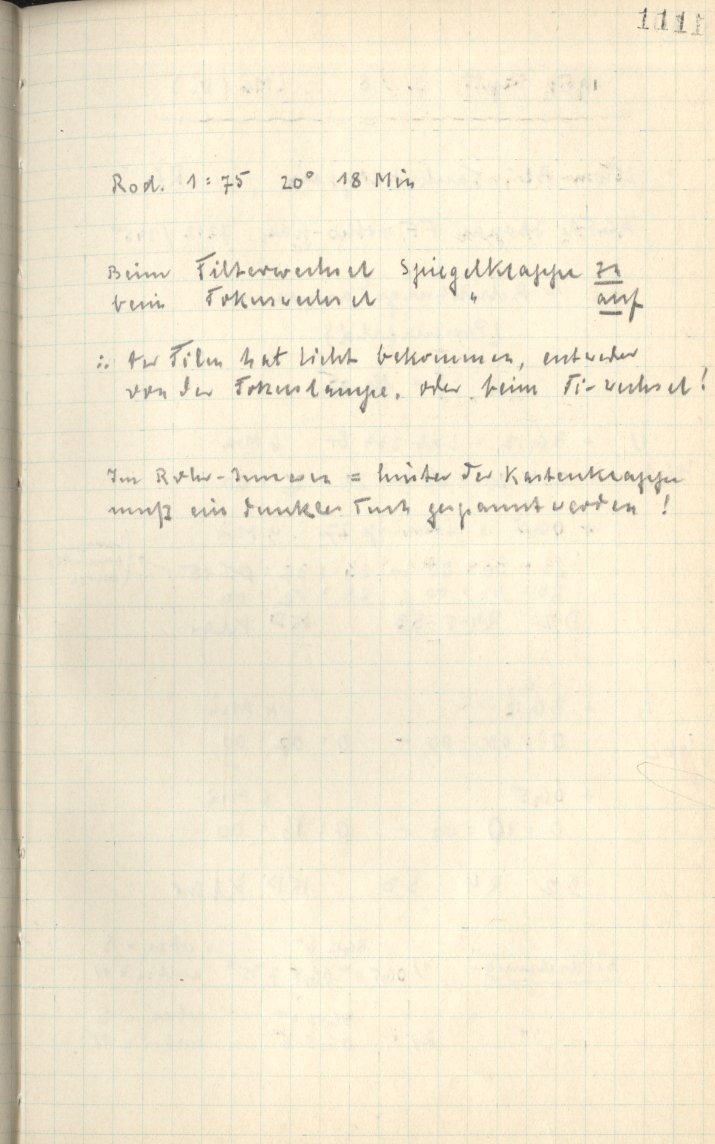 1111
Rod. 1:75 20° 18 Min
Beim Filterwechsel Spiegelklappe zu
beim Fokuswechsel " auf
∴ der Film hat Licht bekommen, entweder
von der Fokuslampe, oder beim Fi-wechsel!
Im Rohr-Inneren = hinter der Kastenklappe
muß ein dunkles Tuch gespannt werden!